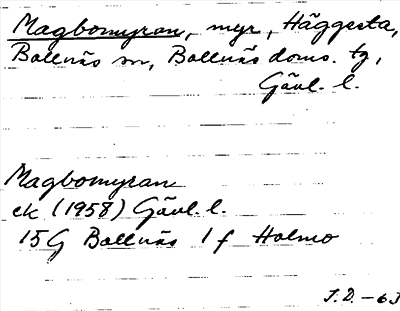 Magbomyran, myr, Häggesta,
Bollnäs sn, Bollnäs doms. tg,
Gävl. l.
Magbomyran
ek (1958) Gävl. l.
15G Bollnäs 1 f Holmo
J.D. -63